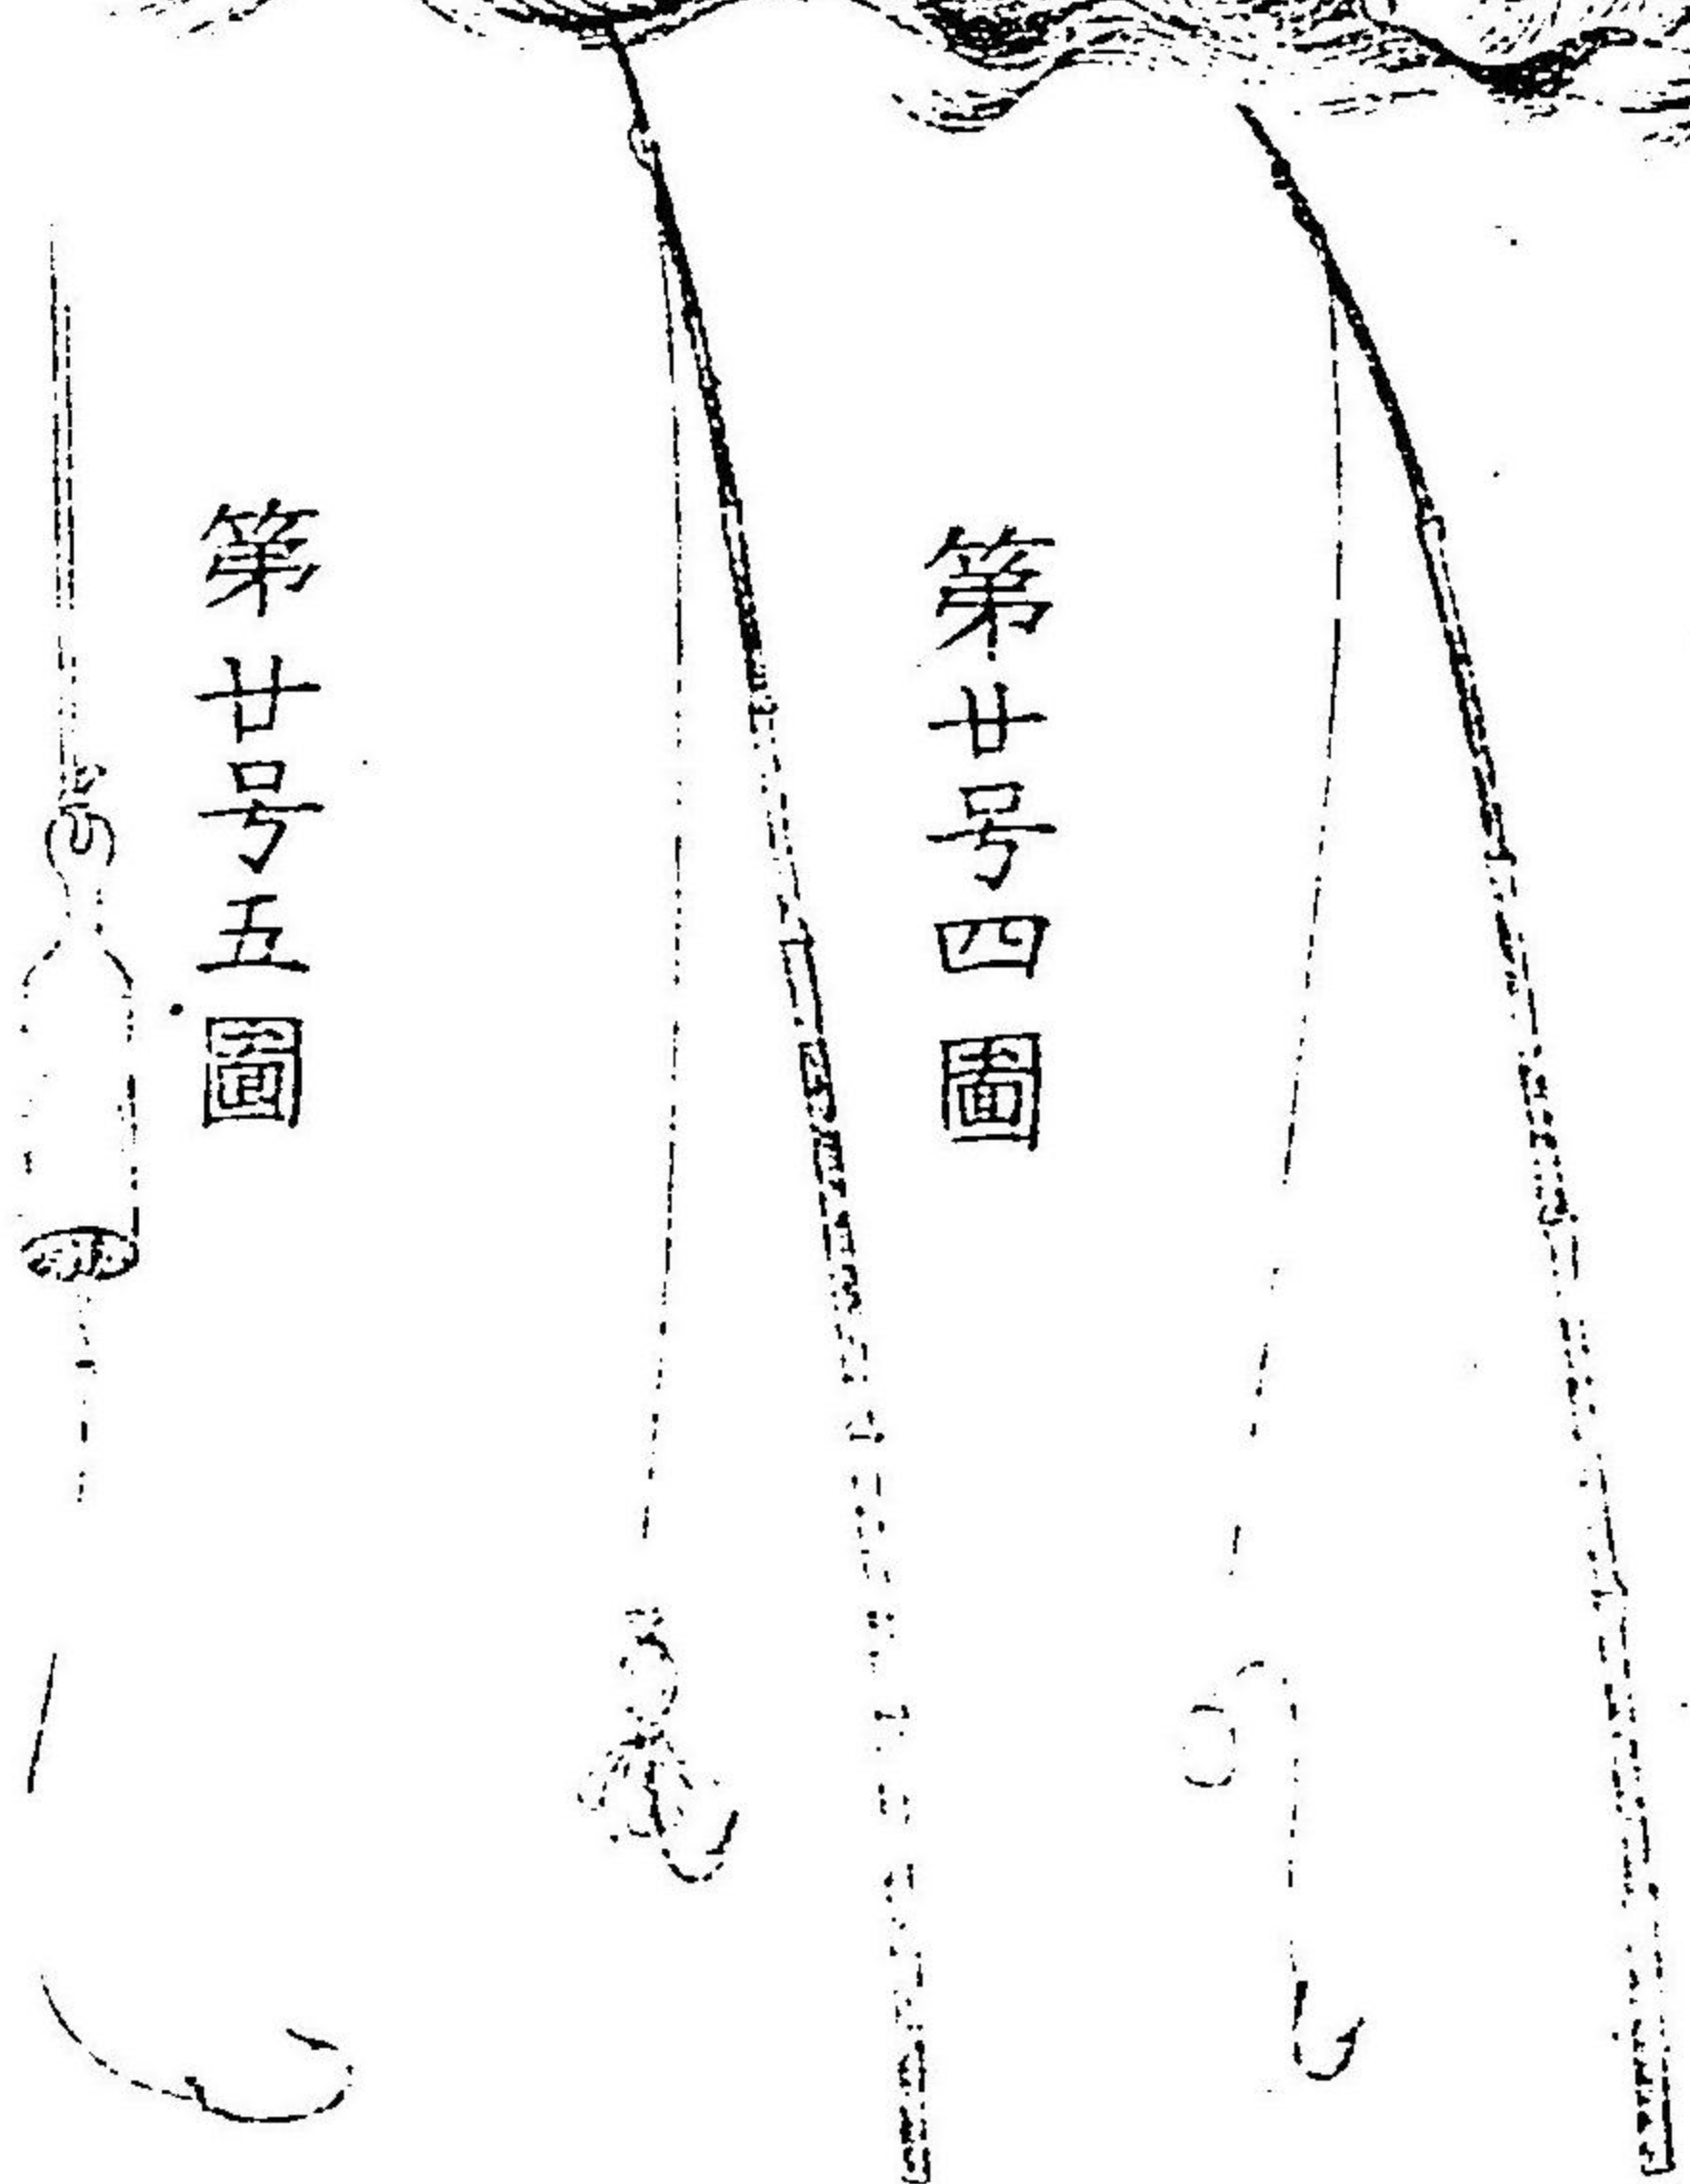 第廿号四圖
第廿号五圖